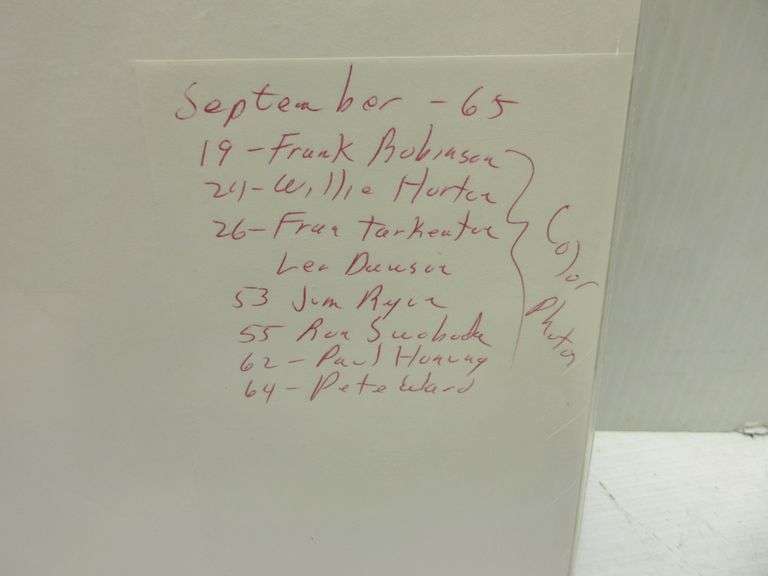 September - 65
19 - Frank Robinson
24 - Willie Horton
26 - Fran Tarkenton
Len Dawson
53 Jim Ryun
55 Ron Swoboda
62 - Paul Hornung
64 - Pete Ward
Color Photos